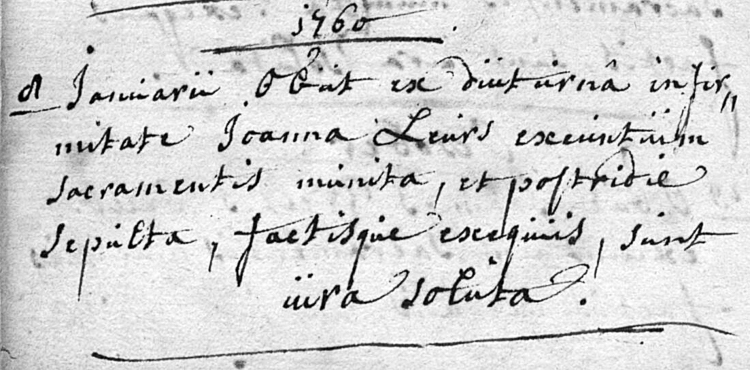 1760
8 Januarii Obiit ex diuturnâ infir„
mitate Joanna Leurs exeuntium
sacramentis munita, et postridie
sepulta, factisque exequiis, sunt
iura soluta.